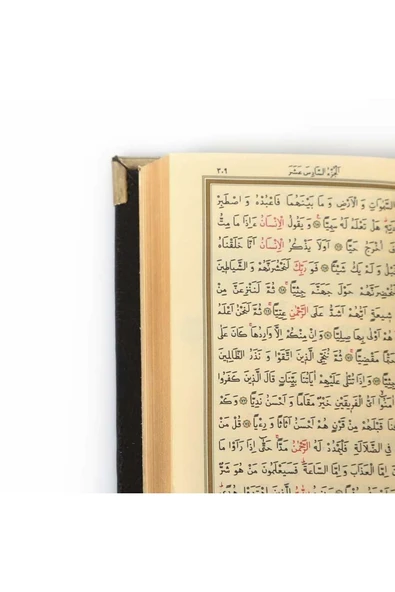 الجزء السادس عشر ٣٠٩
السَّمٰوَاتِ وَ الْاَرْضِ وَ مَا بَيْنَهُمَا فَاعْبُدْهُ وَ اصْطَبِرْ
هَلْ تَعْلَمُ لَهُ سَمِيًّا ۞ وَ يَقُولُ الْاِنْسَانُ ءَاِذَا مَا مِتُّ
اُخْرَجُ حَيًّا ۞ اَوَلَا يَذْكُرُ الْاِنْسَانُ اَنَّا خَلَقْنَاهُ
قَبْلُ وَ لَمْ يَكُ شَيْئًا ۞ فَوَ رَبِّكَ لَنَحْشُرَنَّهُمْ وَ الشَّيَاطِينَ
لَنُحْضِرَنَّهُمْ حَوْلَ جَهَنَّمَ جِثِيًّا ۞ ثُمَّ لَنَنْزِعَنَّ مِنْ
شِيعَةٍ اَيُّهُمْ اَشَدُّ عَلَى الرَّحْمٰنِ عِتِيًّا ۞ ثُمَّ لَنَحْنُ اَعْلَمُ
هُمْ اَوْلٰى بِهَا صِلِيًّا ۞ وَ اِنْ مِنْكُمْ اِلَّا وَارِدُهَا كَانَ عَلٰى
حَتْمًا مَقْضِيًّا ۞ ثُمَّ نُنَجِّي الَّذِينَ اتَّقَوْا وَ نَذَرُ الظَّالِمِينَ
۞ وَ اِذَا تُتْلٰى عَلَيْهِمْ اٰيَاتُنَا بَيِّنَاتٍ قَالَ الَّذِينَ كَفَرُوا
اٰمَنُوا اَيُّ الْفَرِيقَيْنِ خَيْرٌ مَقَامًا وَ اَحْسَنُ نَدِيًّا ۞ وَ كَمْ
قَبْلَهُمْ مِنْ قَرْنٍ هُمْ اَحْسَنُ اَثَاثًا وَ رِءْيًا ۞ قُلْ مَنْ
فِي الضَّلَالَةِ فَلْيَمْدُدْ لَهُ الرَّحْمٰنُ مَدًّا حَتّٰى اِذَا رَاَوْا مَا
اِمَّا الْعَذَابَ وَ اِمَّا السَّاعَةَ فَسَيَعْلَمُونَ مَنْ هُوَ شَرٌّ